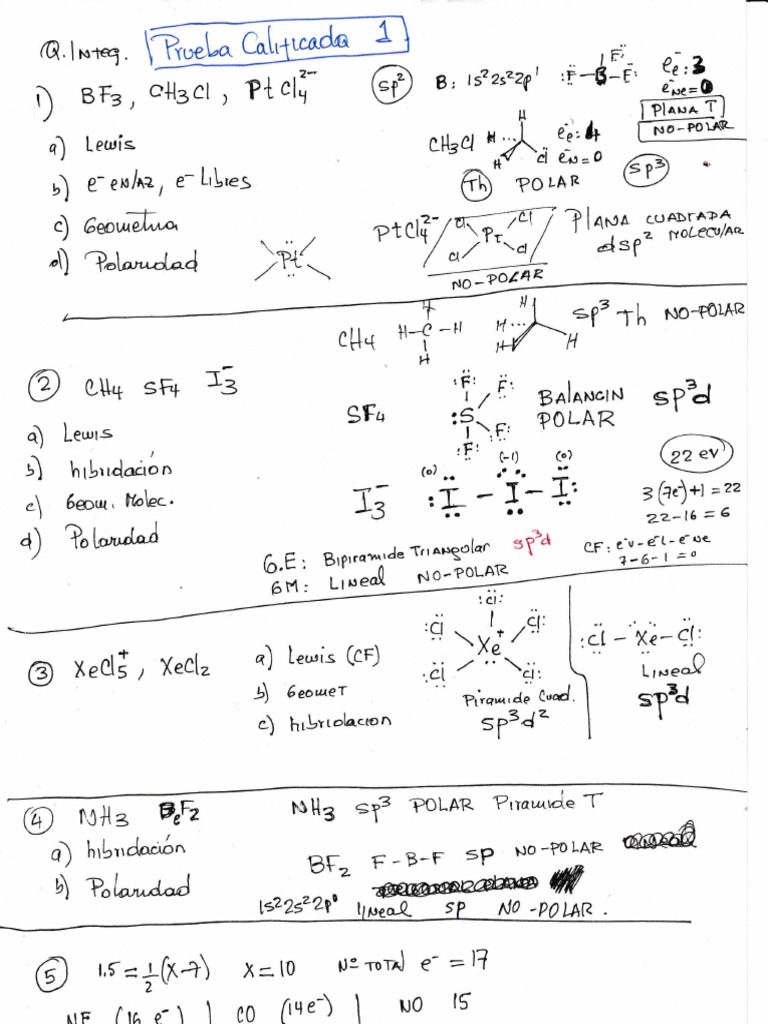 Q. Integ. Prueba Calificada 1
1) BF3, CH3Cl, PtCl4 2-
a) Lewis
b) e- eN/AZ, e- Libres
c) Geometria
d) Polaridad
Pt
sp2
B: 1s2 2s2 2p1
F-B-F:
F
ee-: 3
eNe = 0
PLANA T
NO-POLAR
CH3Cl
H
H
H
Cl
ee-: 4
eN = 0
Th POLAR
sp3
PtCl4 2-
Cl Cl
Pt
Cl Cl
NO-POLAR
PLANA CUADRADA
dsp2 MOLECULAR
CH4
H
H-C-H
H
H
H
H
H
sp3 Th NO-POLAR
2 CH4 SF4 I3-
a) Lewis
b) hibridación
c) Geom. Molec.
d) Polaridad
SF4
:F: F:
:S
F:
:F:
BALANCIN sp3d
POLAR
22 ev
3(7e-)+1=22
22-16=6
I3-
(0) (-1) (0)
:I - I - I:
G.E: Bipiramide Triangolar sp3d
GM: Lineal NO-POLAR
CF: e-v-e-l-e-Ne
7-6-1=0
3 XeCl5+, XeCl2
a) Lewis (CF)
b) Geomet
c) hibridacion
:Cl:
:Cl Cl:
Xe+
:Cl Cl:
Piramide Cuad.
sp3d2
:Cl - Xe - Cl:
Lineal
sp3d
4 NH3 BeF2
a) hibridación
b) Polaridad
NH3 sp3 POLAR Piramide T
BF2 F-B-F sp NO-POLAR
1s2 2s2 2p0 lineal sp NO-POLAR.
5 1.5=1/2(X-7) X=10 Nº TOTAL e- = 17
NF (16 e-) | CO (14e-) | NO 15